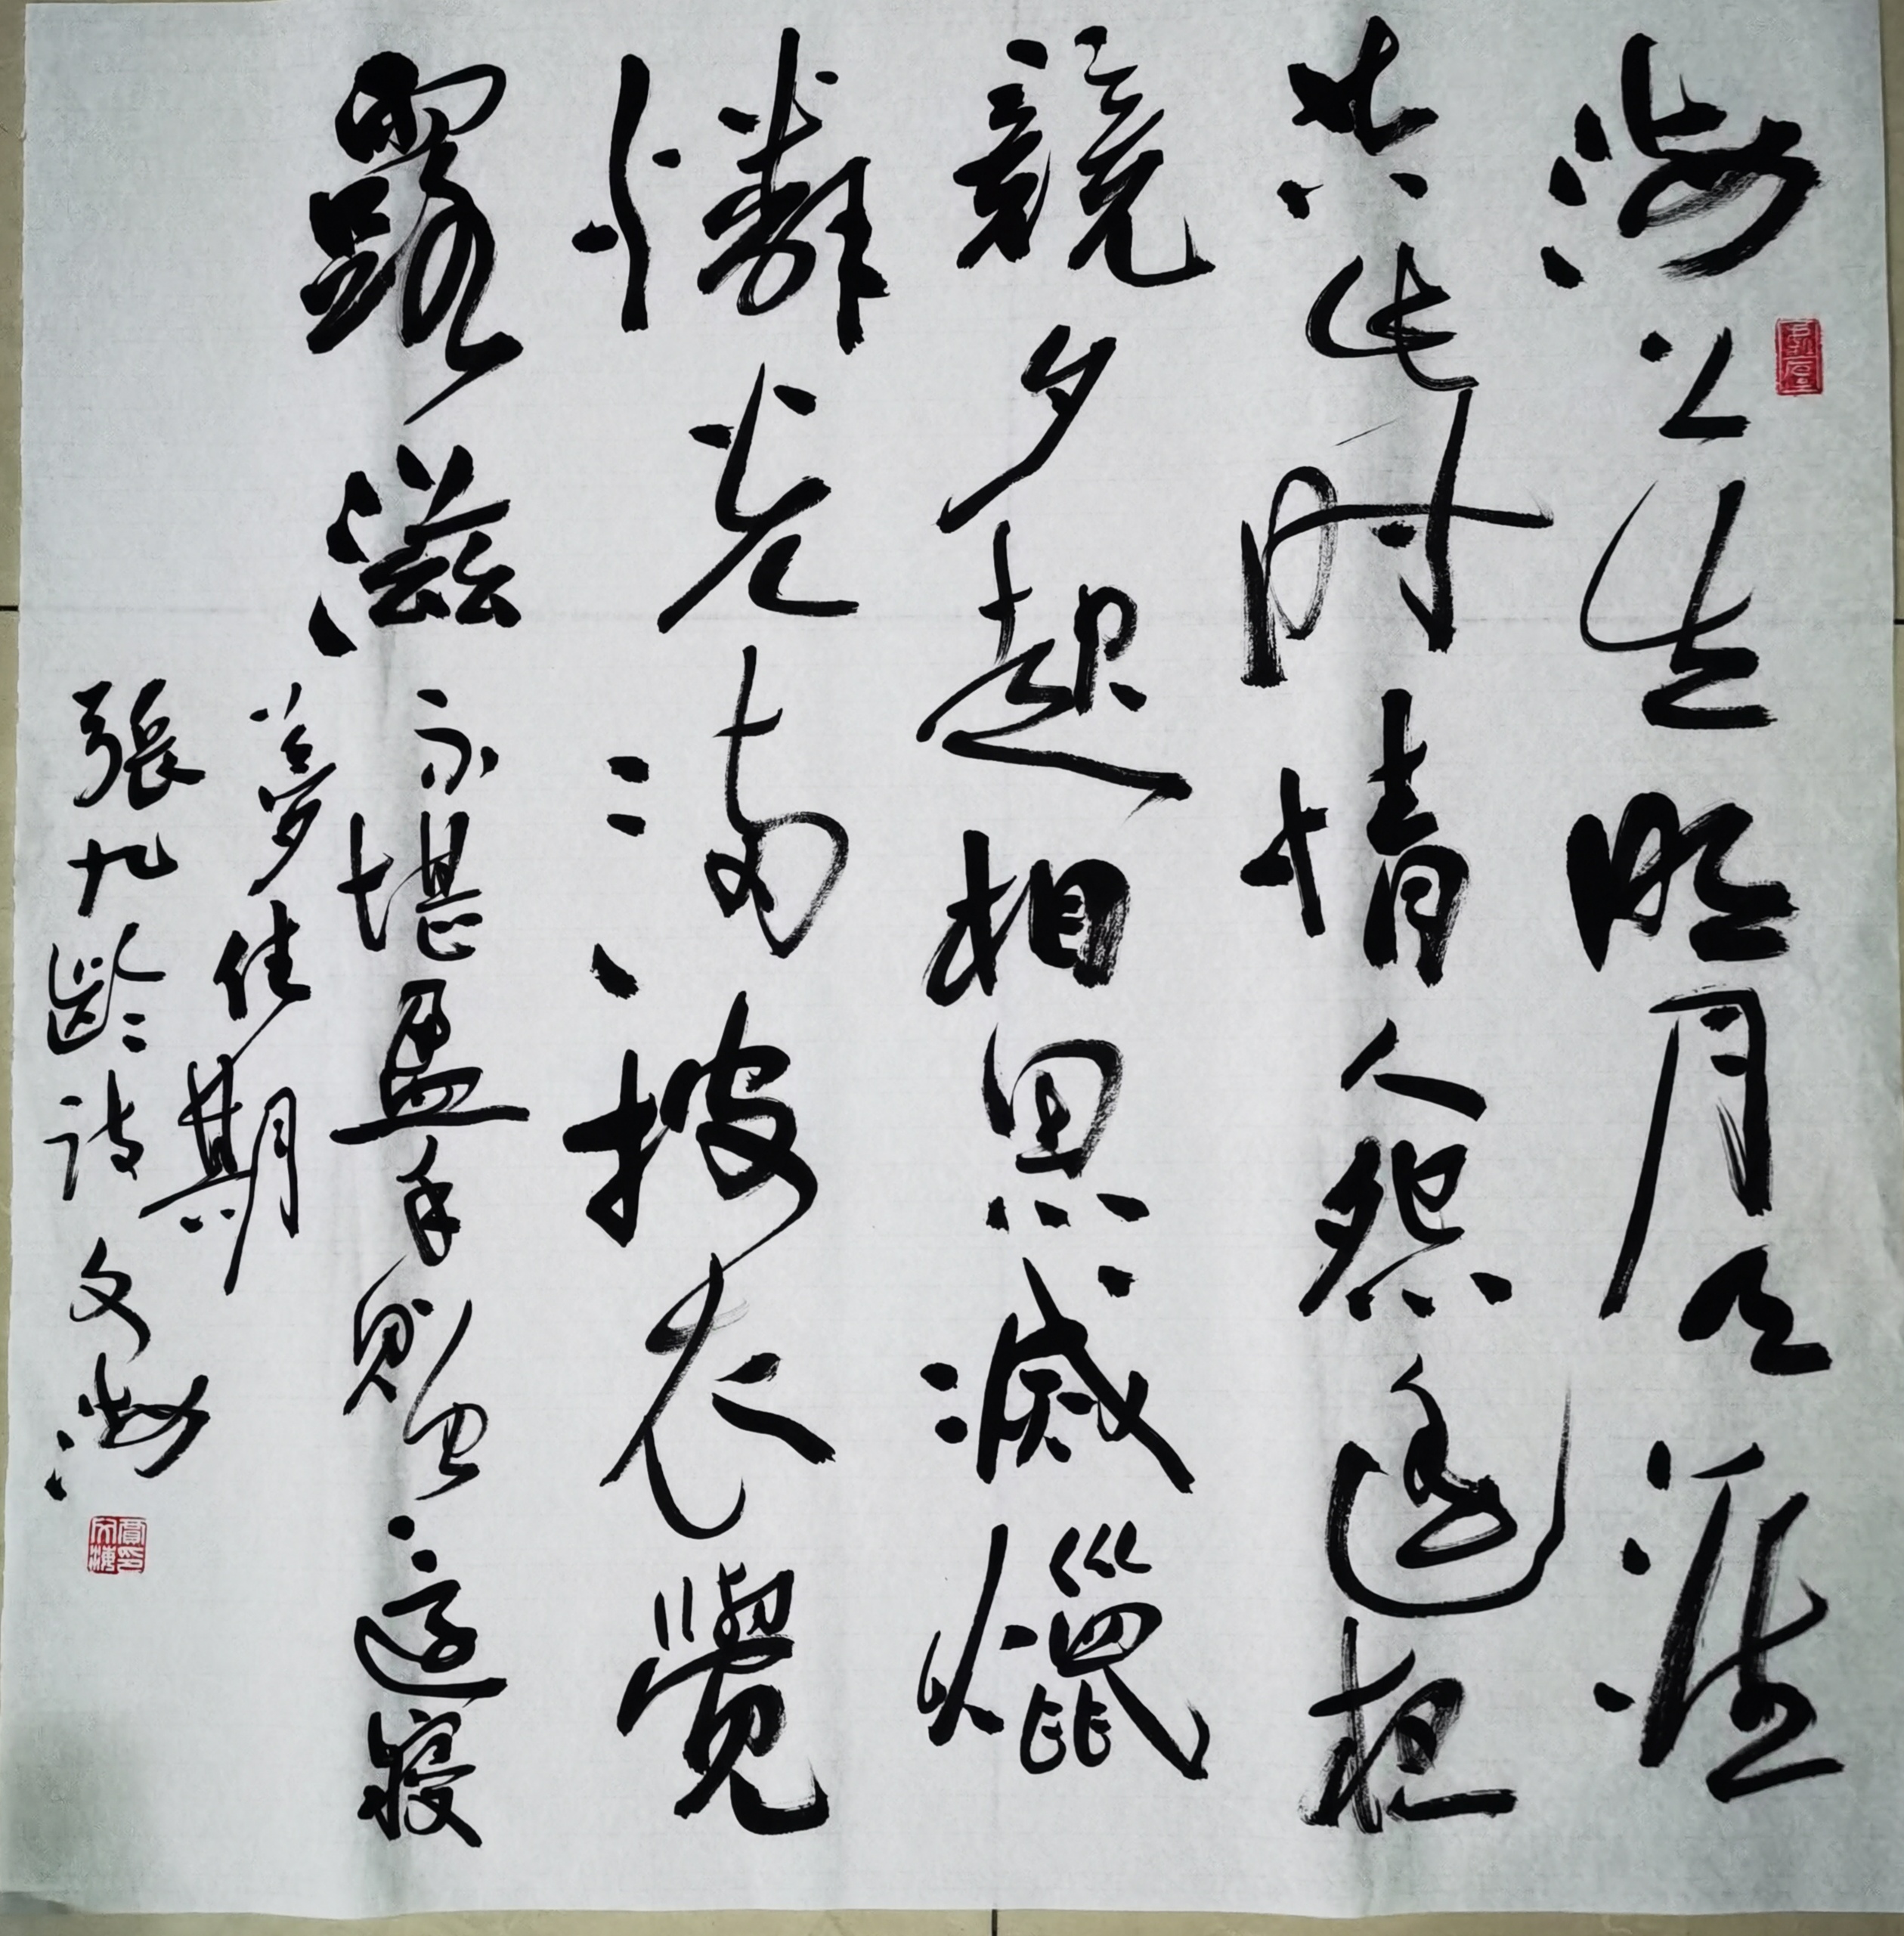 海上生明月天涯
共此时情人怨遥夜
競夕起相思滅爉
憐光满披衣覺
露滋不堪盈手贈還寢
夢佳期
張九齡诗 文海